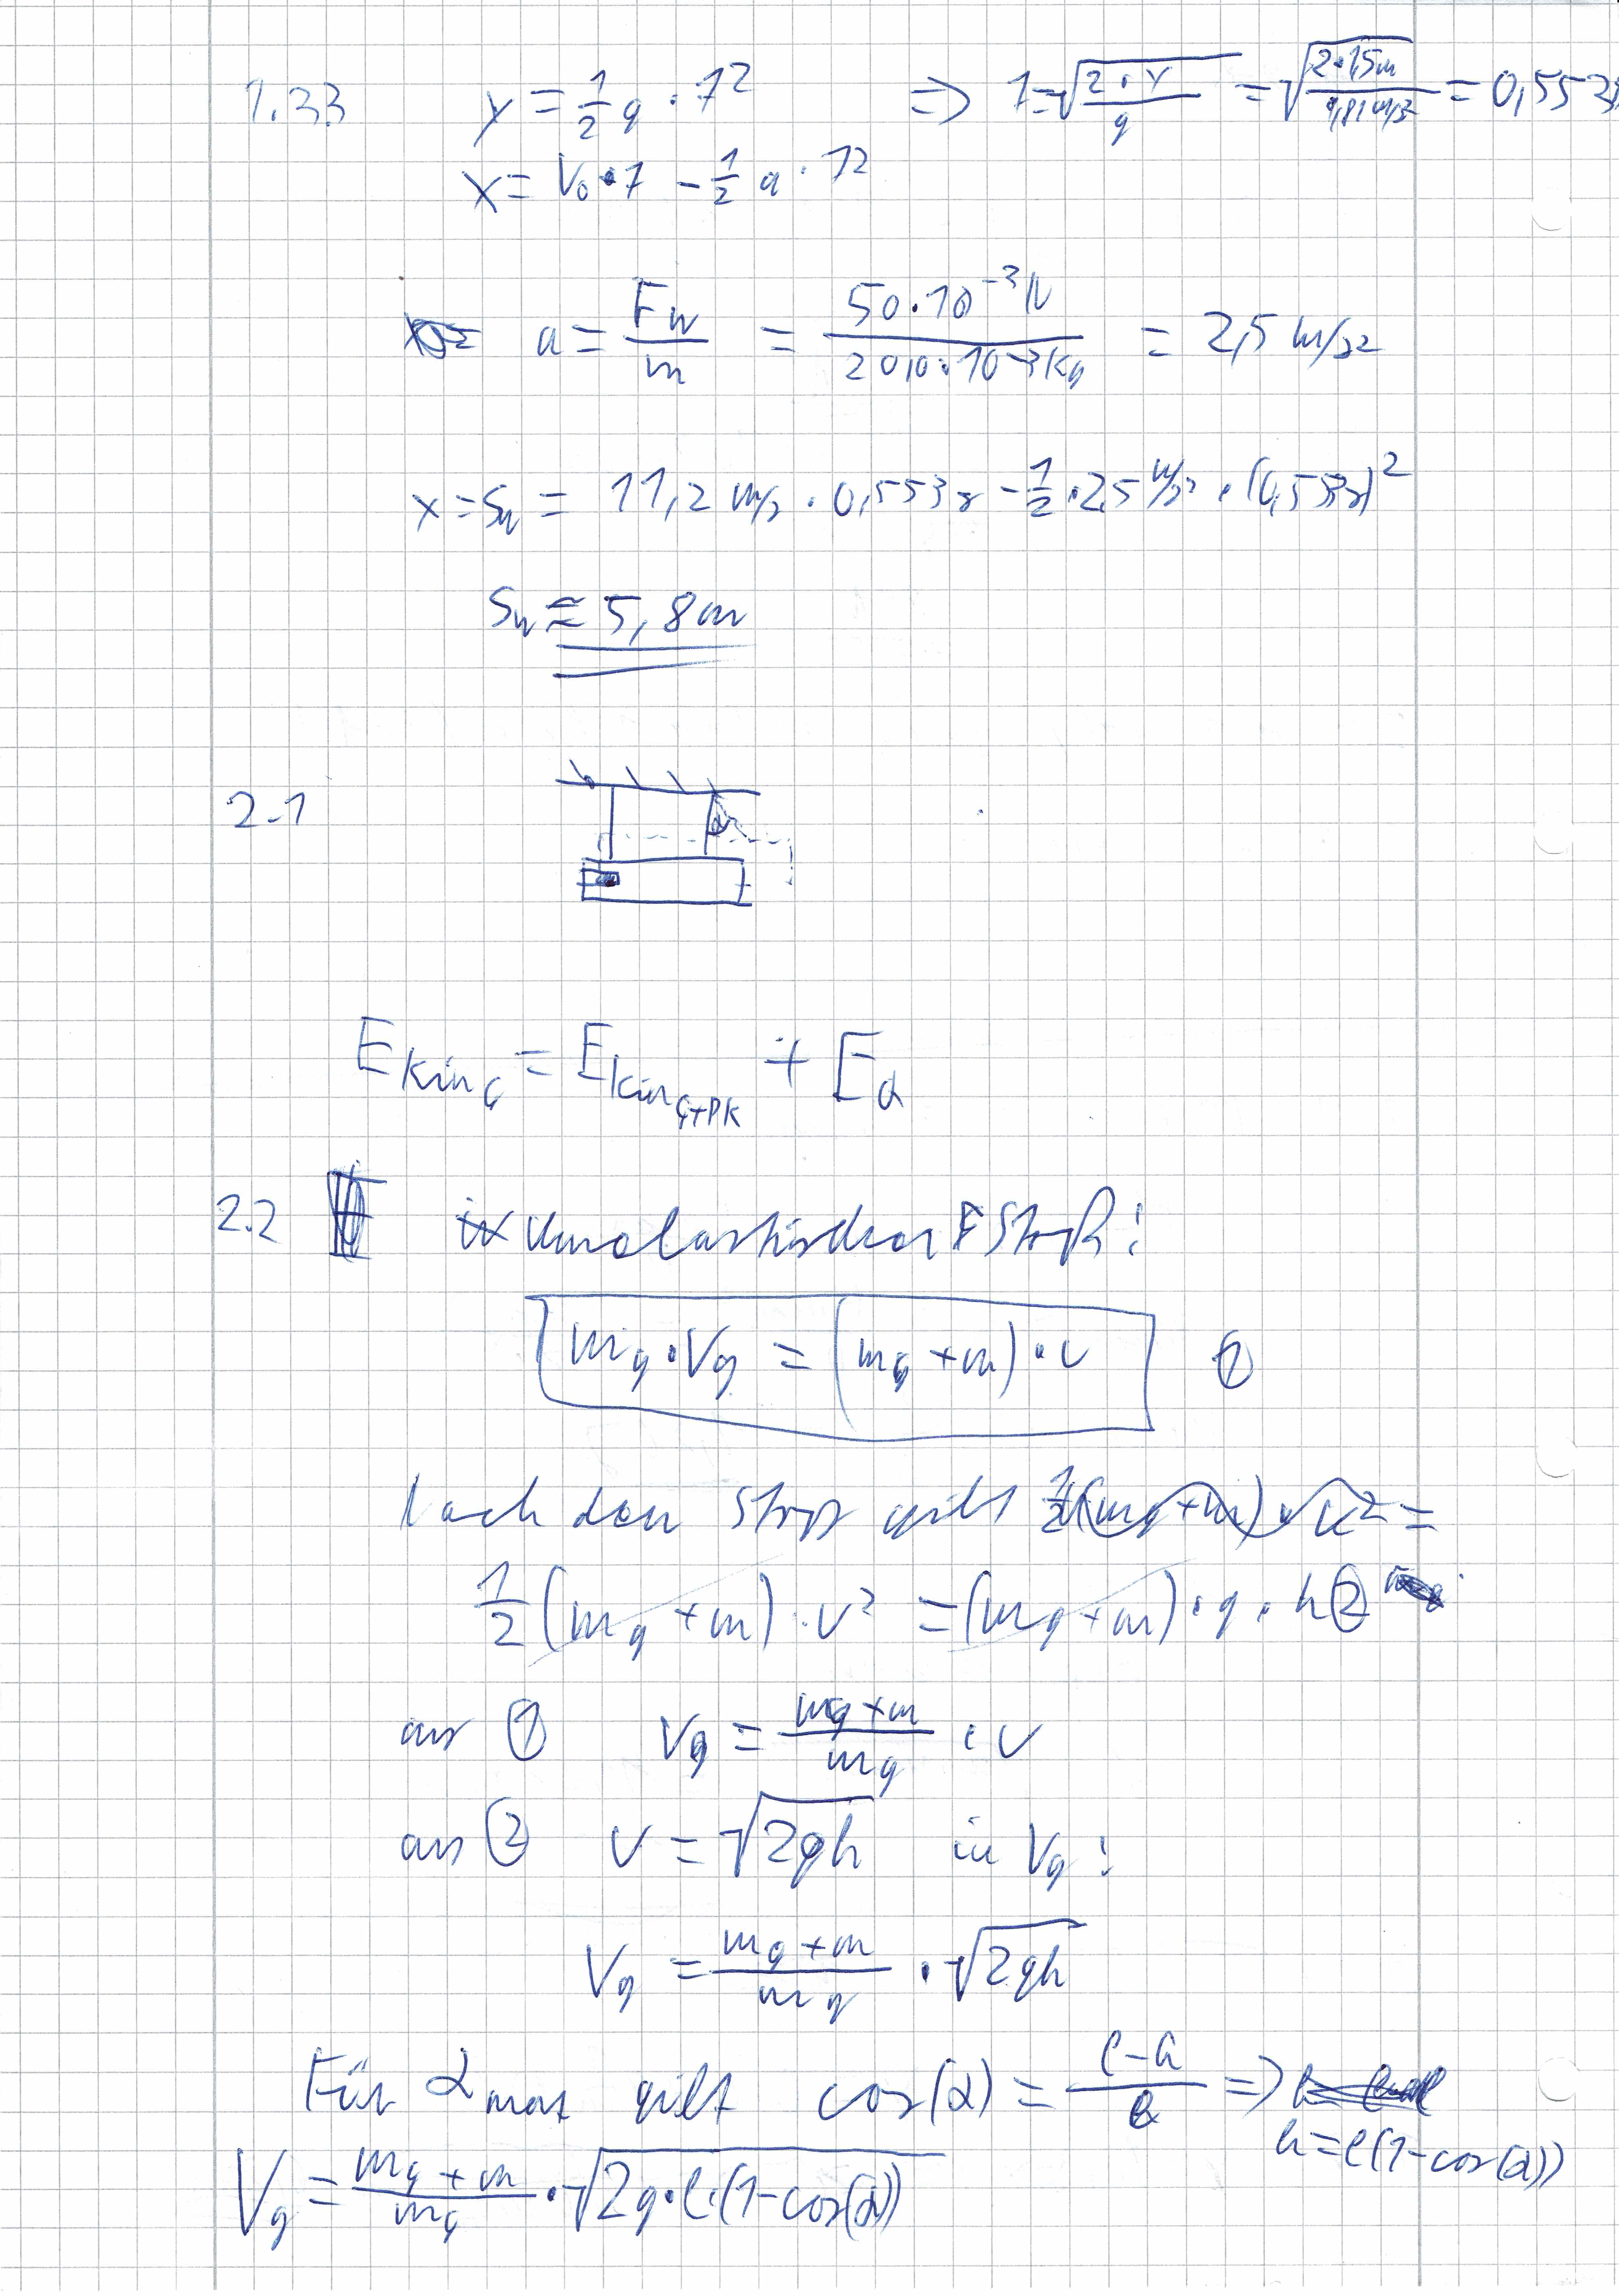 1.33 y = 1/2 g · t² => t = √(2·y/g) = √(2·1,5m/9,81 m/s²) = 0,553s
x = v₀·t - 1/2 a · t²
a = F_w/m = 50·10⁻³N/20,0·10⁻³kg = 2,5 m/s²
x = s_w = 11,2 m/s · 0,553s - 1/2 · 2,5 m/s² · (0,553s)²
s_w ≈ 5,8m
2.1
E_kin_G = E_kin_G+PK + E_d
2.2 unelastischer Stoß:
m_g · v_g = (m_g + m) · v ①
Nach dem Stoß gilt 1/2 (m_g + m) · v² =
1/2 (m_g + m) · v² = (m_g + m) · g · h ②
aus ① v_g = (m_g + m)/m_g · v
aus ② v = √(2gh) in v_g:
v_g = (m_g + m)/m_g · √(2gh)
Für α_max gilt cos(α) = (l-h)/l =>
h = l(1-cos(α))
v_g = (m_g + m)/m_g · √(2g·l·(1-cos(α)))